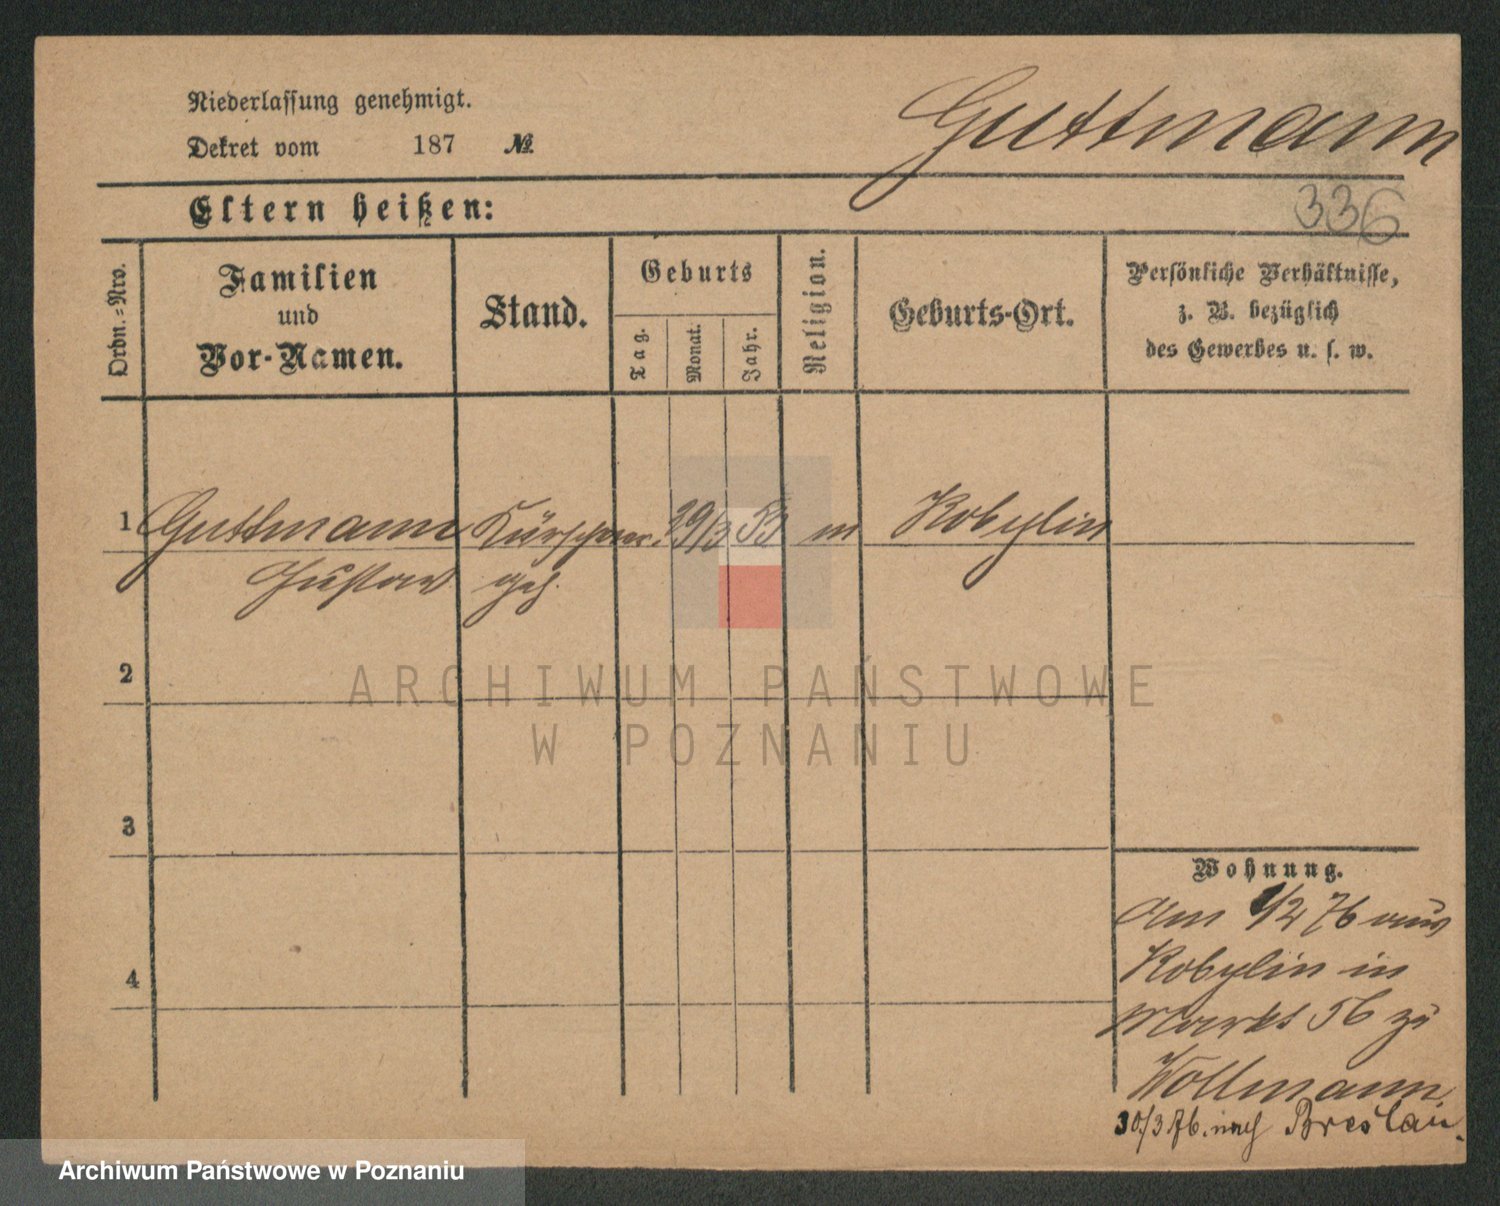 Niederlassung genehmigt.
Guttmann
Dekret vom 187 №
336
Eltern heißen:
Ordn.-Nro.
Familien
und
Vor-Namen.
Stand.
Geburts
Tag.
Monat.
Jahr.
Religion.
Geburts-Ort.
Persönliche Verhältnisse,
z. B. bezüglich
des Gewerbes u. s. w.
1 Guttmann Kürschner. 29/3 53 m Kobylin
Gustav geh.
2
3
4
Wohnung.
Am 1/2 76 aus
Kobylin in
Markt 56 zu
Wollmann.
30/3 76. nach Breslau.
ARCHIWUM PAŃSTWOWE
W POZNANIU
Archiwum Państwowe w Poznaniu